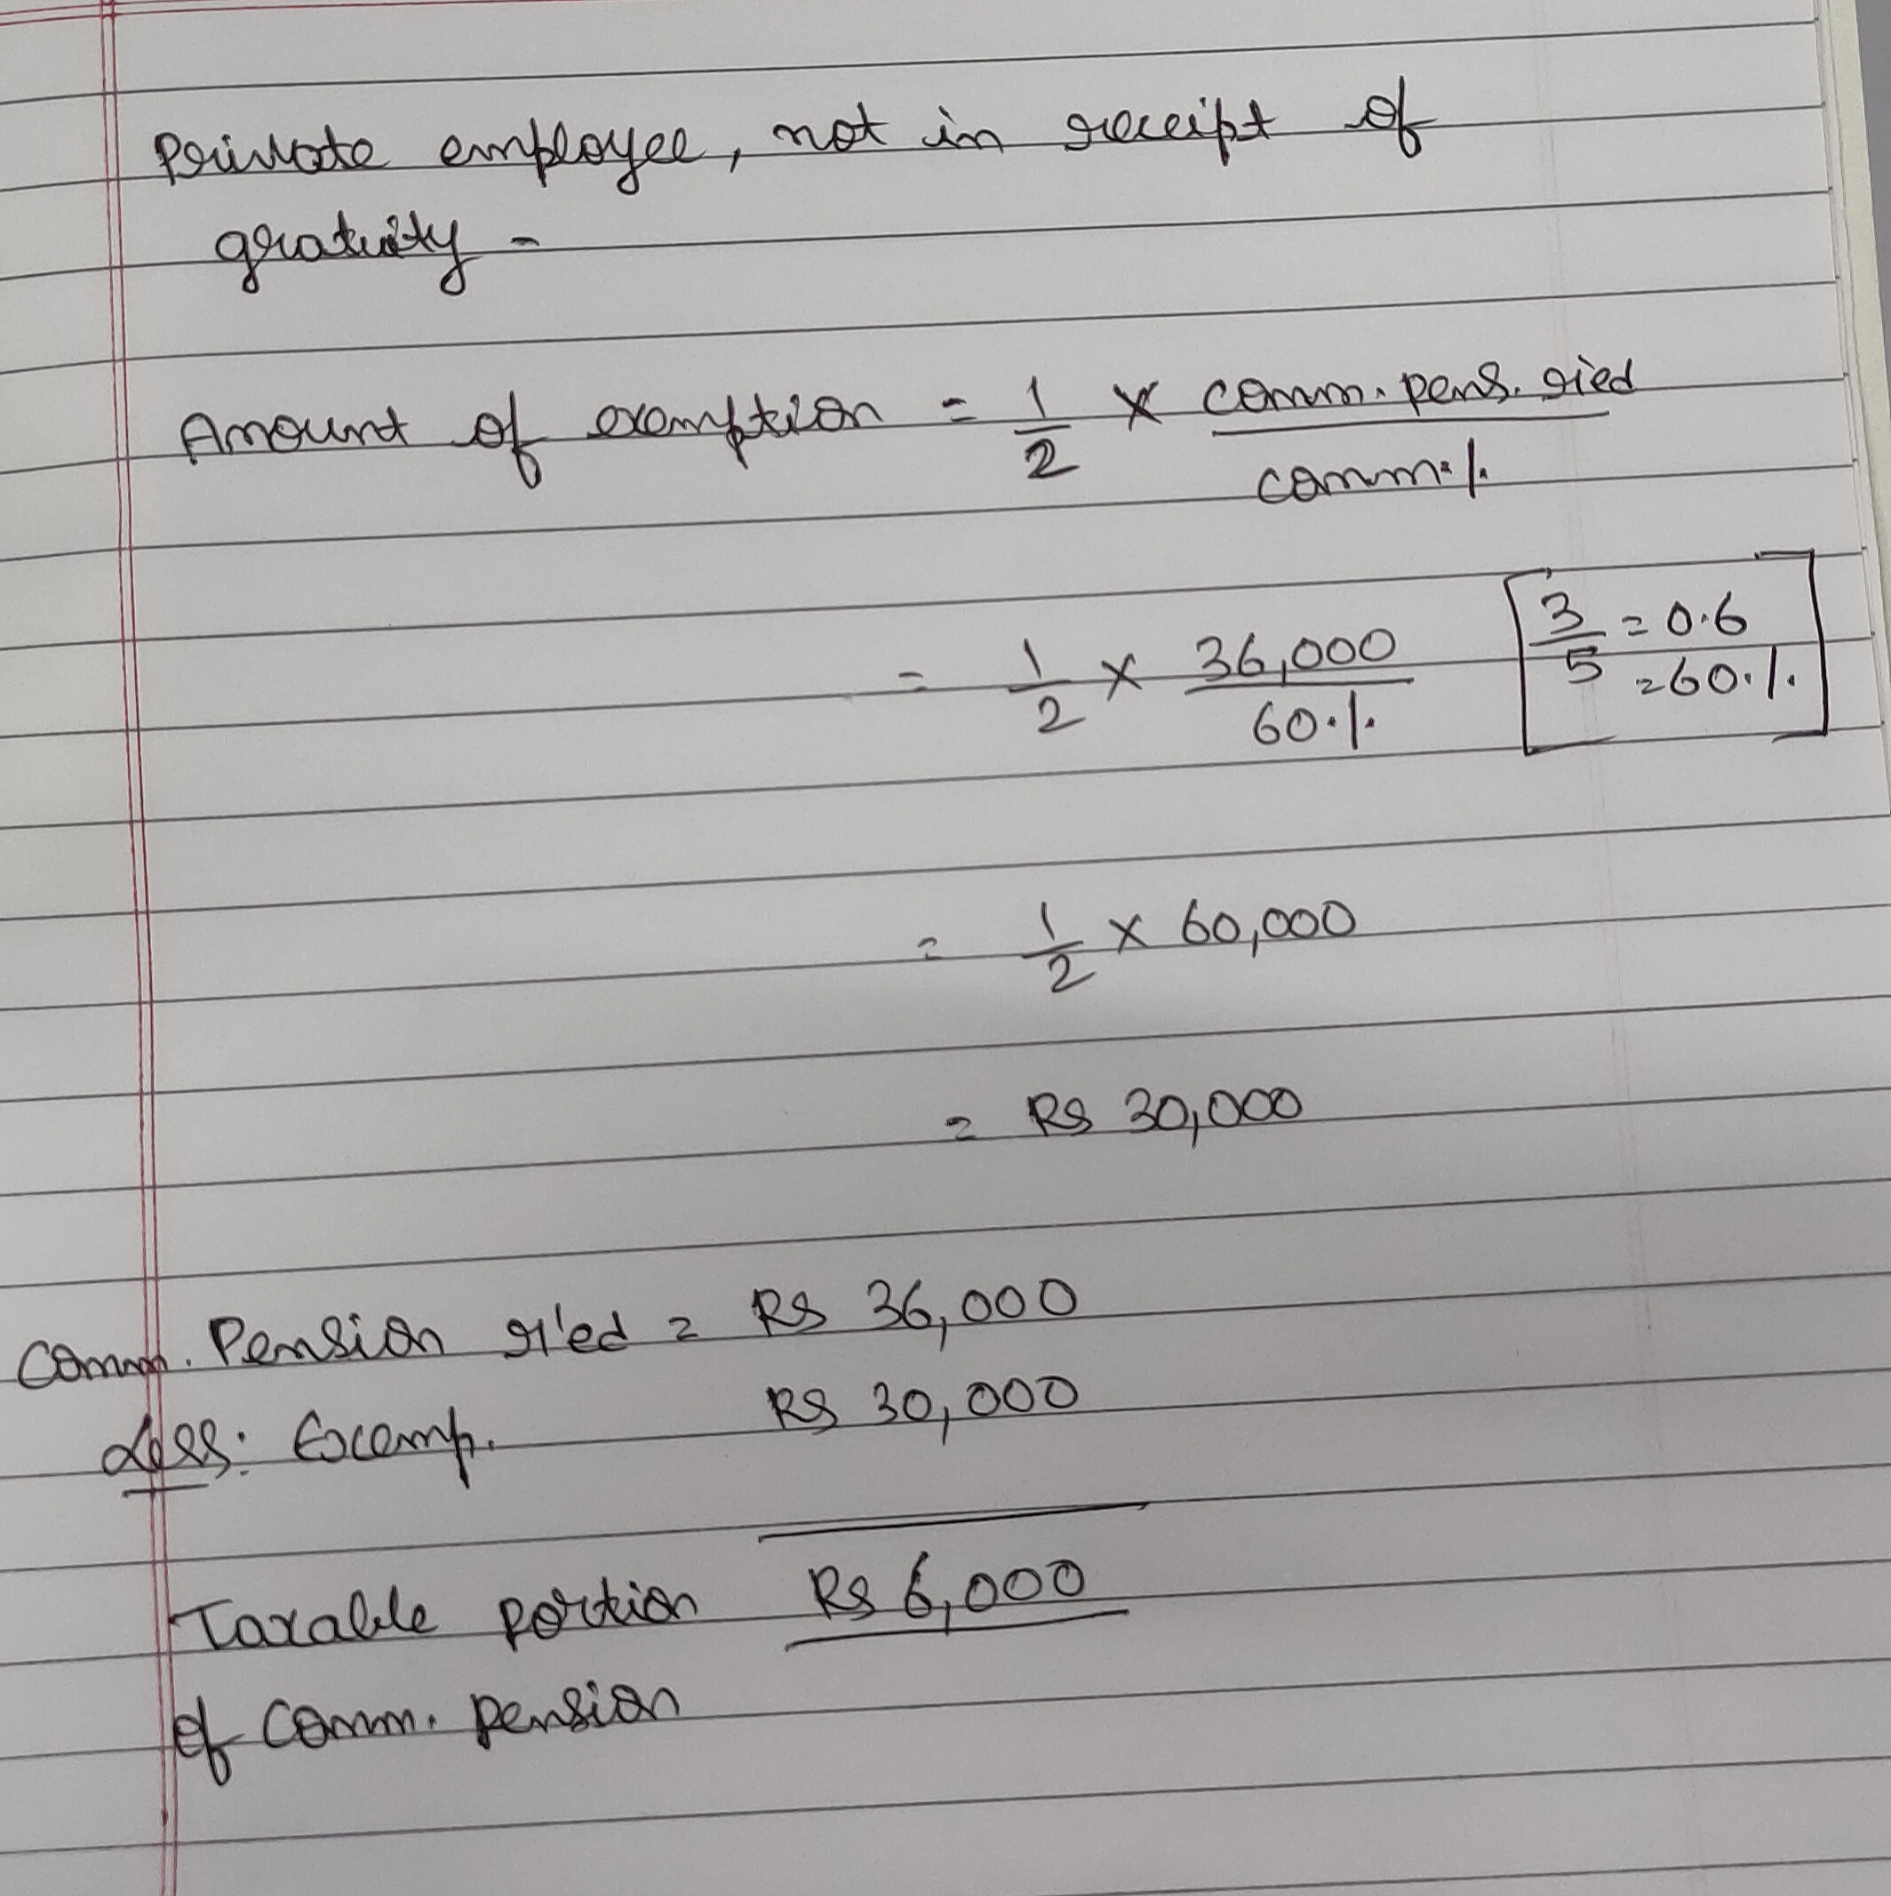 Private employee, not in receipt of
gratuity -
Amount of exemption = 1/2 × comm. pens. r'ed / comm.%
= 1/2 × 36,000 / 60% [3/5 = 0.6 = 60%]
= 1/2 × 60,000
= Rs 30,000
Comm. Pension r'ed = Rs 36,000
Less: Exemp. Rs 30,000
Taxable portion Rs 6,000
of comm. pension